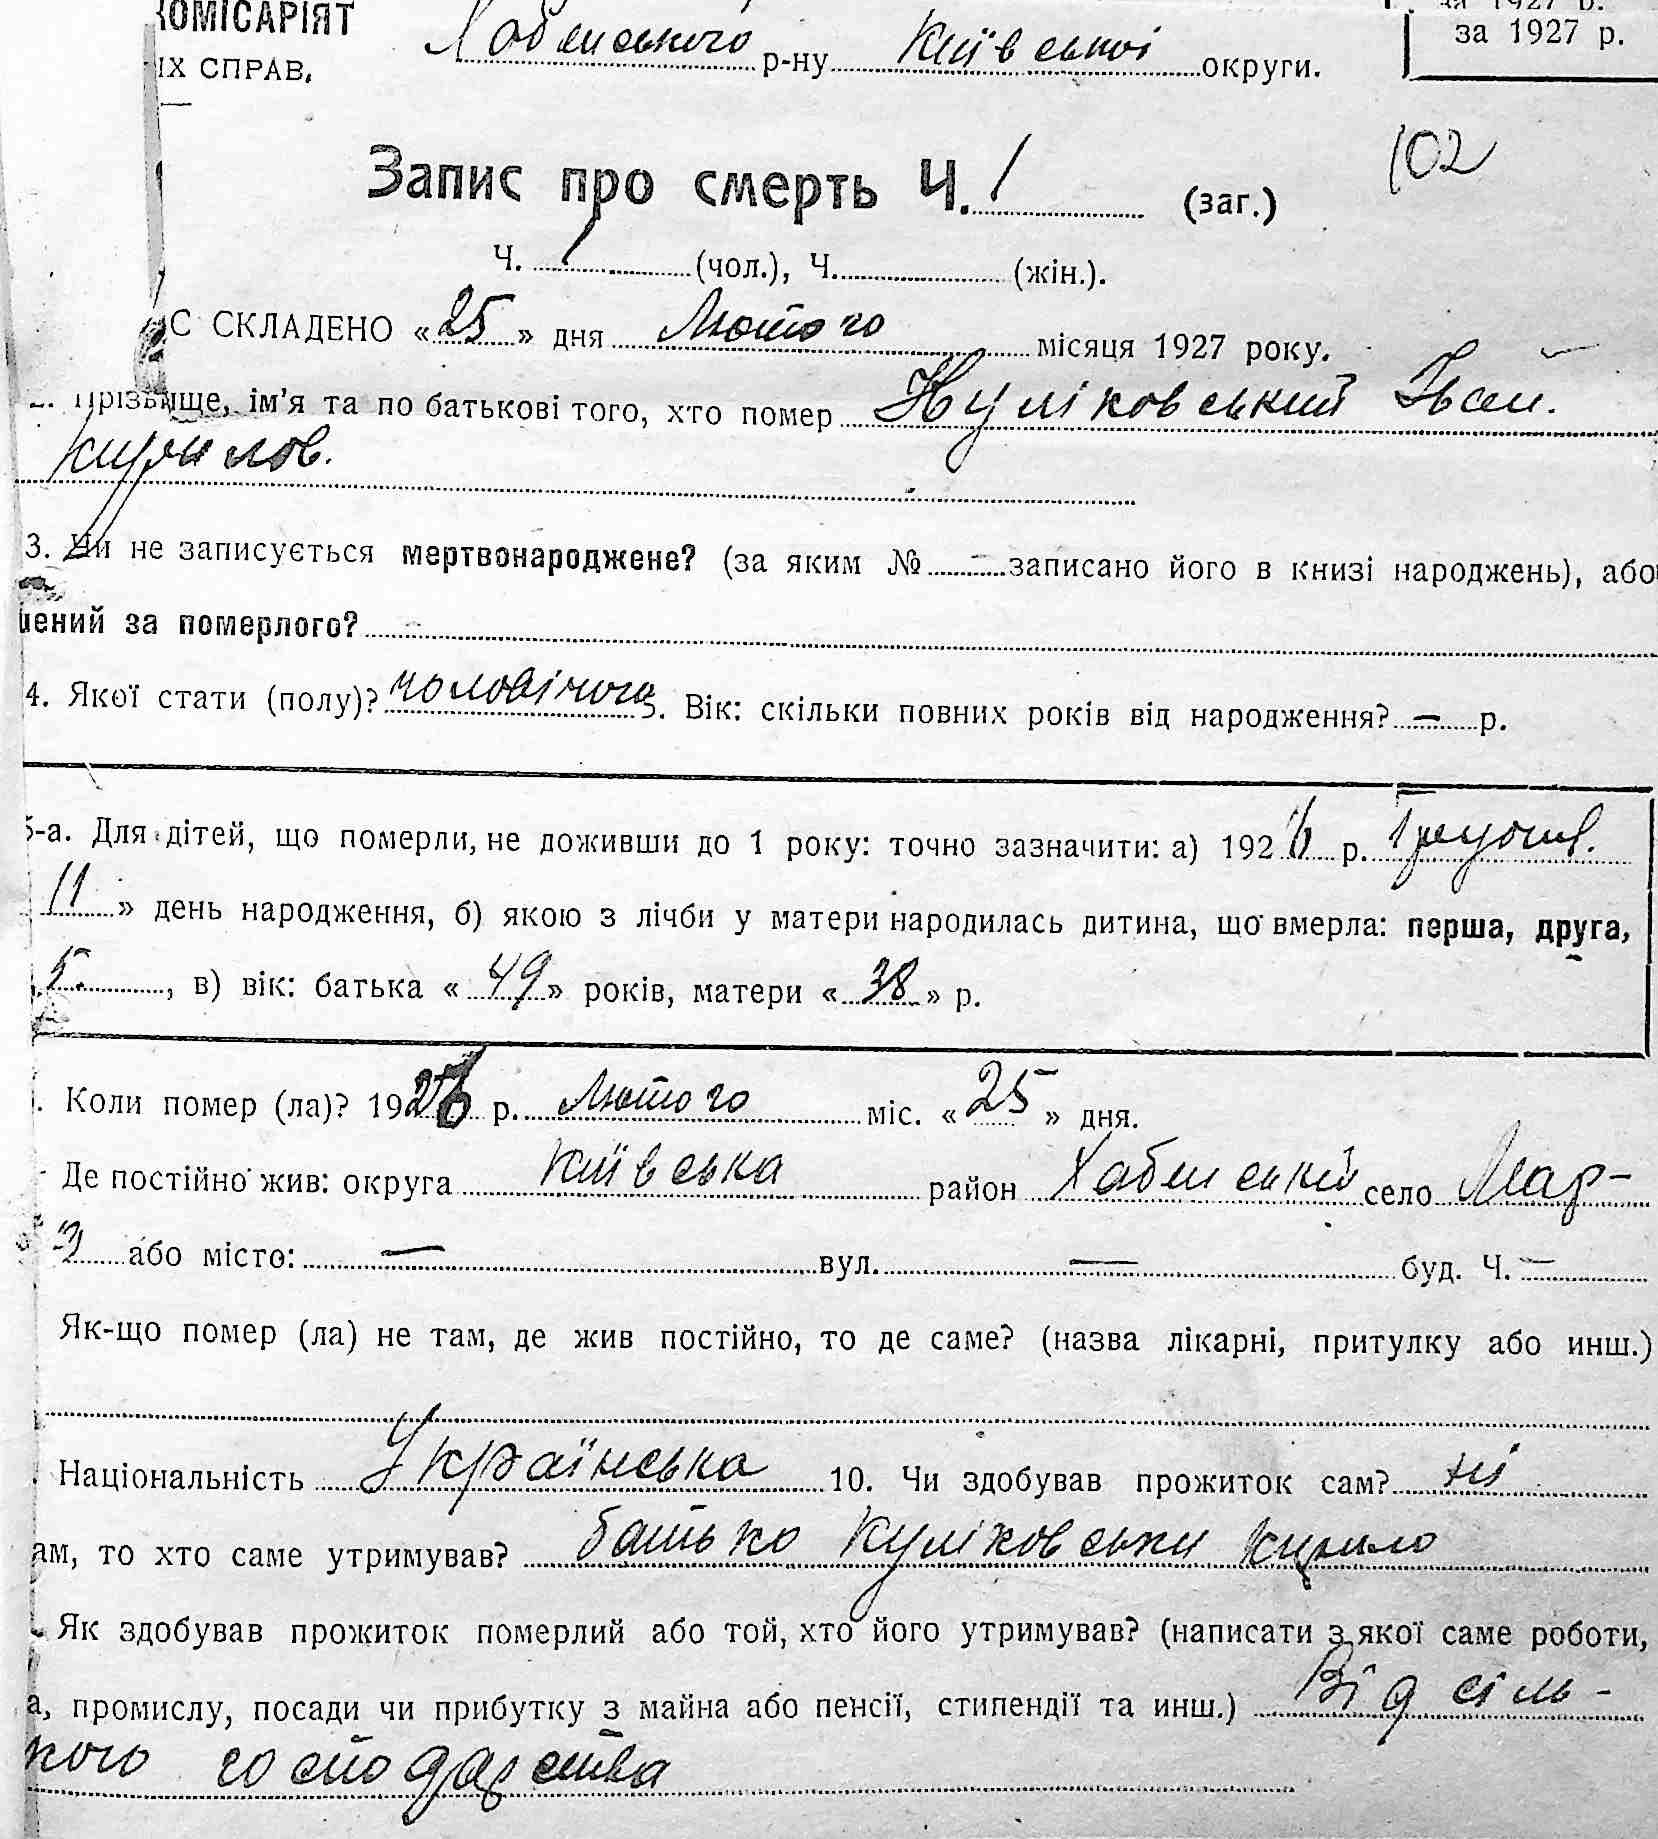 КОМІСАРІЯТ
ИХ СПРАВ.
за 1927 р.
Хабенського р-ну Київської округи.
102
Запис про смерть Ч. 1 (заг.)
Ч. 1 (чол.), Ч. (жін.).
С СКЛАДЕНО «25» дня Лютого місяця 1927 року.
2. Прізвище, ім'я та по батькові того, хто помер Куліковський Іван.
Кирилов.
3. Чи не записується мертвонароджене? (за яким № - записано його в книзі народжень), або
шений за померлого? -
4. Якої стати (полу)? чоловічого 5. Вік: скільки повних років від народження? — р.
5-а. Для дітей, що померли, не доживши до 1 року: точно зазначити: а) 1926 р.
11 » день народження, б) якою з лічби у матери народилась дитина, що вмерла: перша, друга,
5. , в) вік: батька «49» років, матери «38» р.
. Коли помер (ла)? 1926 р. Лютого міс. «25» дня.
Де постійно жив: округа Київська район Хабенській село Мар-
або місто: — вул. — буд. Ч. —
Як-що помер (ла) не там, де жив постійно, то де саме? (назва лікарні, притулку або инш.)
. Національність Українська 10. Чи здобував прожиток сам? ні
ам, то хто саме утримував? батько Куліковськи Кирило
Як здобував прожиток померлий або той, хто його утримував? (написати з якої саме роботи,
а, промислу, посади чи прибутку з майна або пенсії, стипендії та инш.) Від сіль-
кого господарства